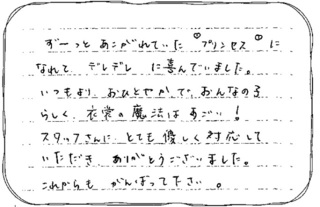 ずーっとあこがれていた ♡プリンセス♡に
なれて、デレデレに喜んでいました。
いつもより、おひとやかで、おんなの子
らしく、衣裳の魔法はすごい!
スタッフさんに、とても優しく対応して
いただき ありがとうございました。
これからも がんばって下さい。